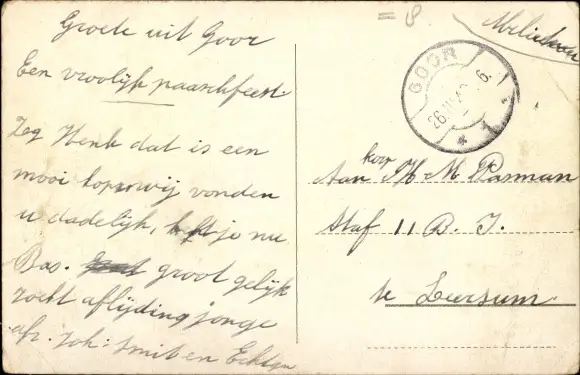 Groete uit Goor
Een vroolijk paaschfeest
Zeg Henk dat is een
mooi kopwij vonden
u dadelijk, heft je nu
Bas. groot gelijk
zoekt aflijding jonge
afz. Joh: Smit en
= 8
GOOR
26.III.40 6
1
Aan korp H. M. Pasman
Staf 11 B. I.
te Leersum